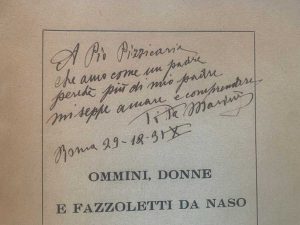 A Pio Pizzicaria
che amo come un padre
perchè più di mio padre
mi seppe amare e comprendere
Roma 29-12-31 X
OMMINI, DONNE
E FAZZOLETTI DA NASO